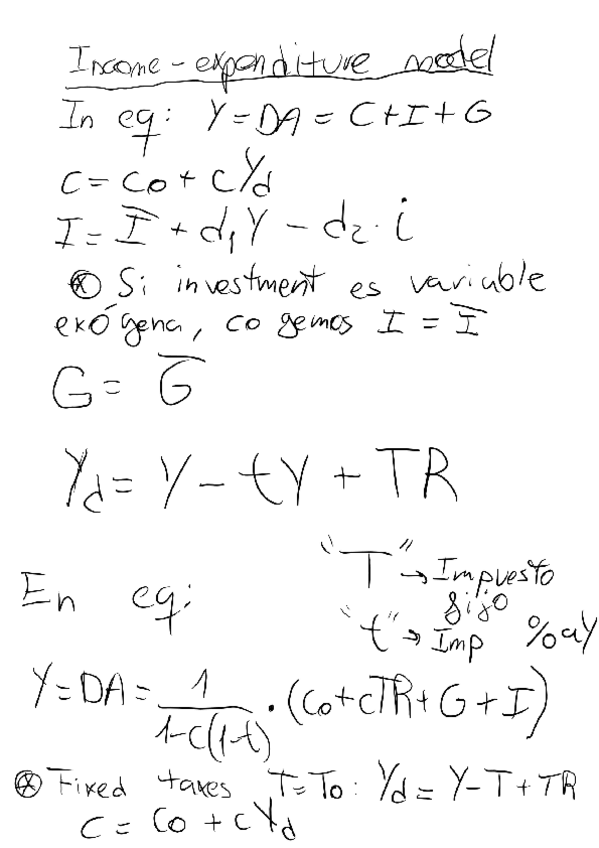 Income-expenditure model
In eq: Y=DA= C+I+G
C= Co + cYd
I= I̅ + d₁Y - d₂· i
⊛ Si investment es variable
exógena, cogemos I = I̅
G= G̅
Yd= Y - tY + TR
"T" → Impuesto
fijo
En eq:
"t" → Imp %aY
Y=DA= 1/(1-c(1-t)) · (Co+cTR+G+I)
⊛ Fixed taxes T=To: Yd= Y-T+TR
C= Co + cYd